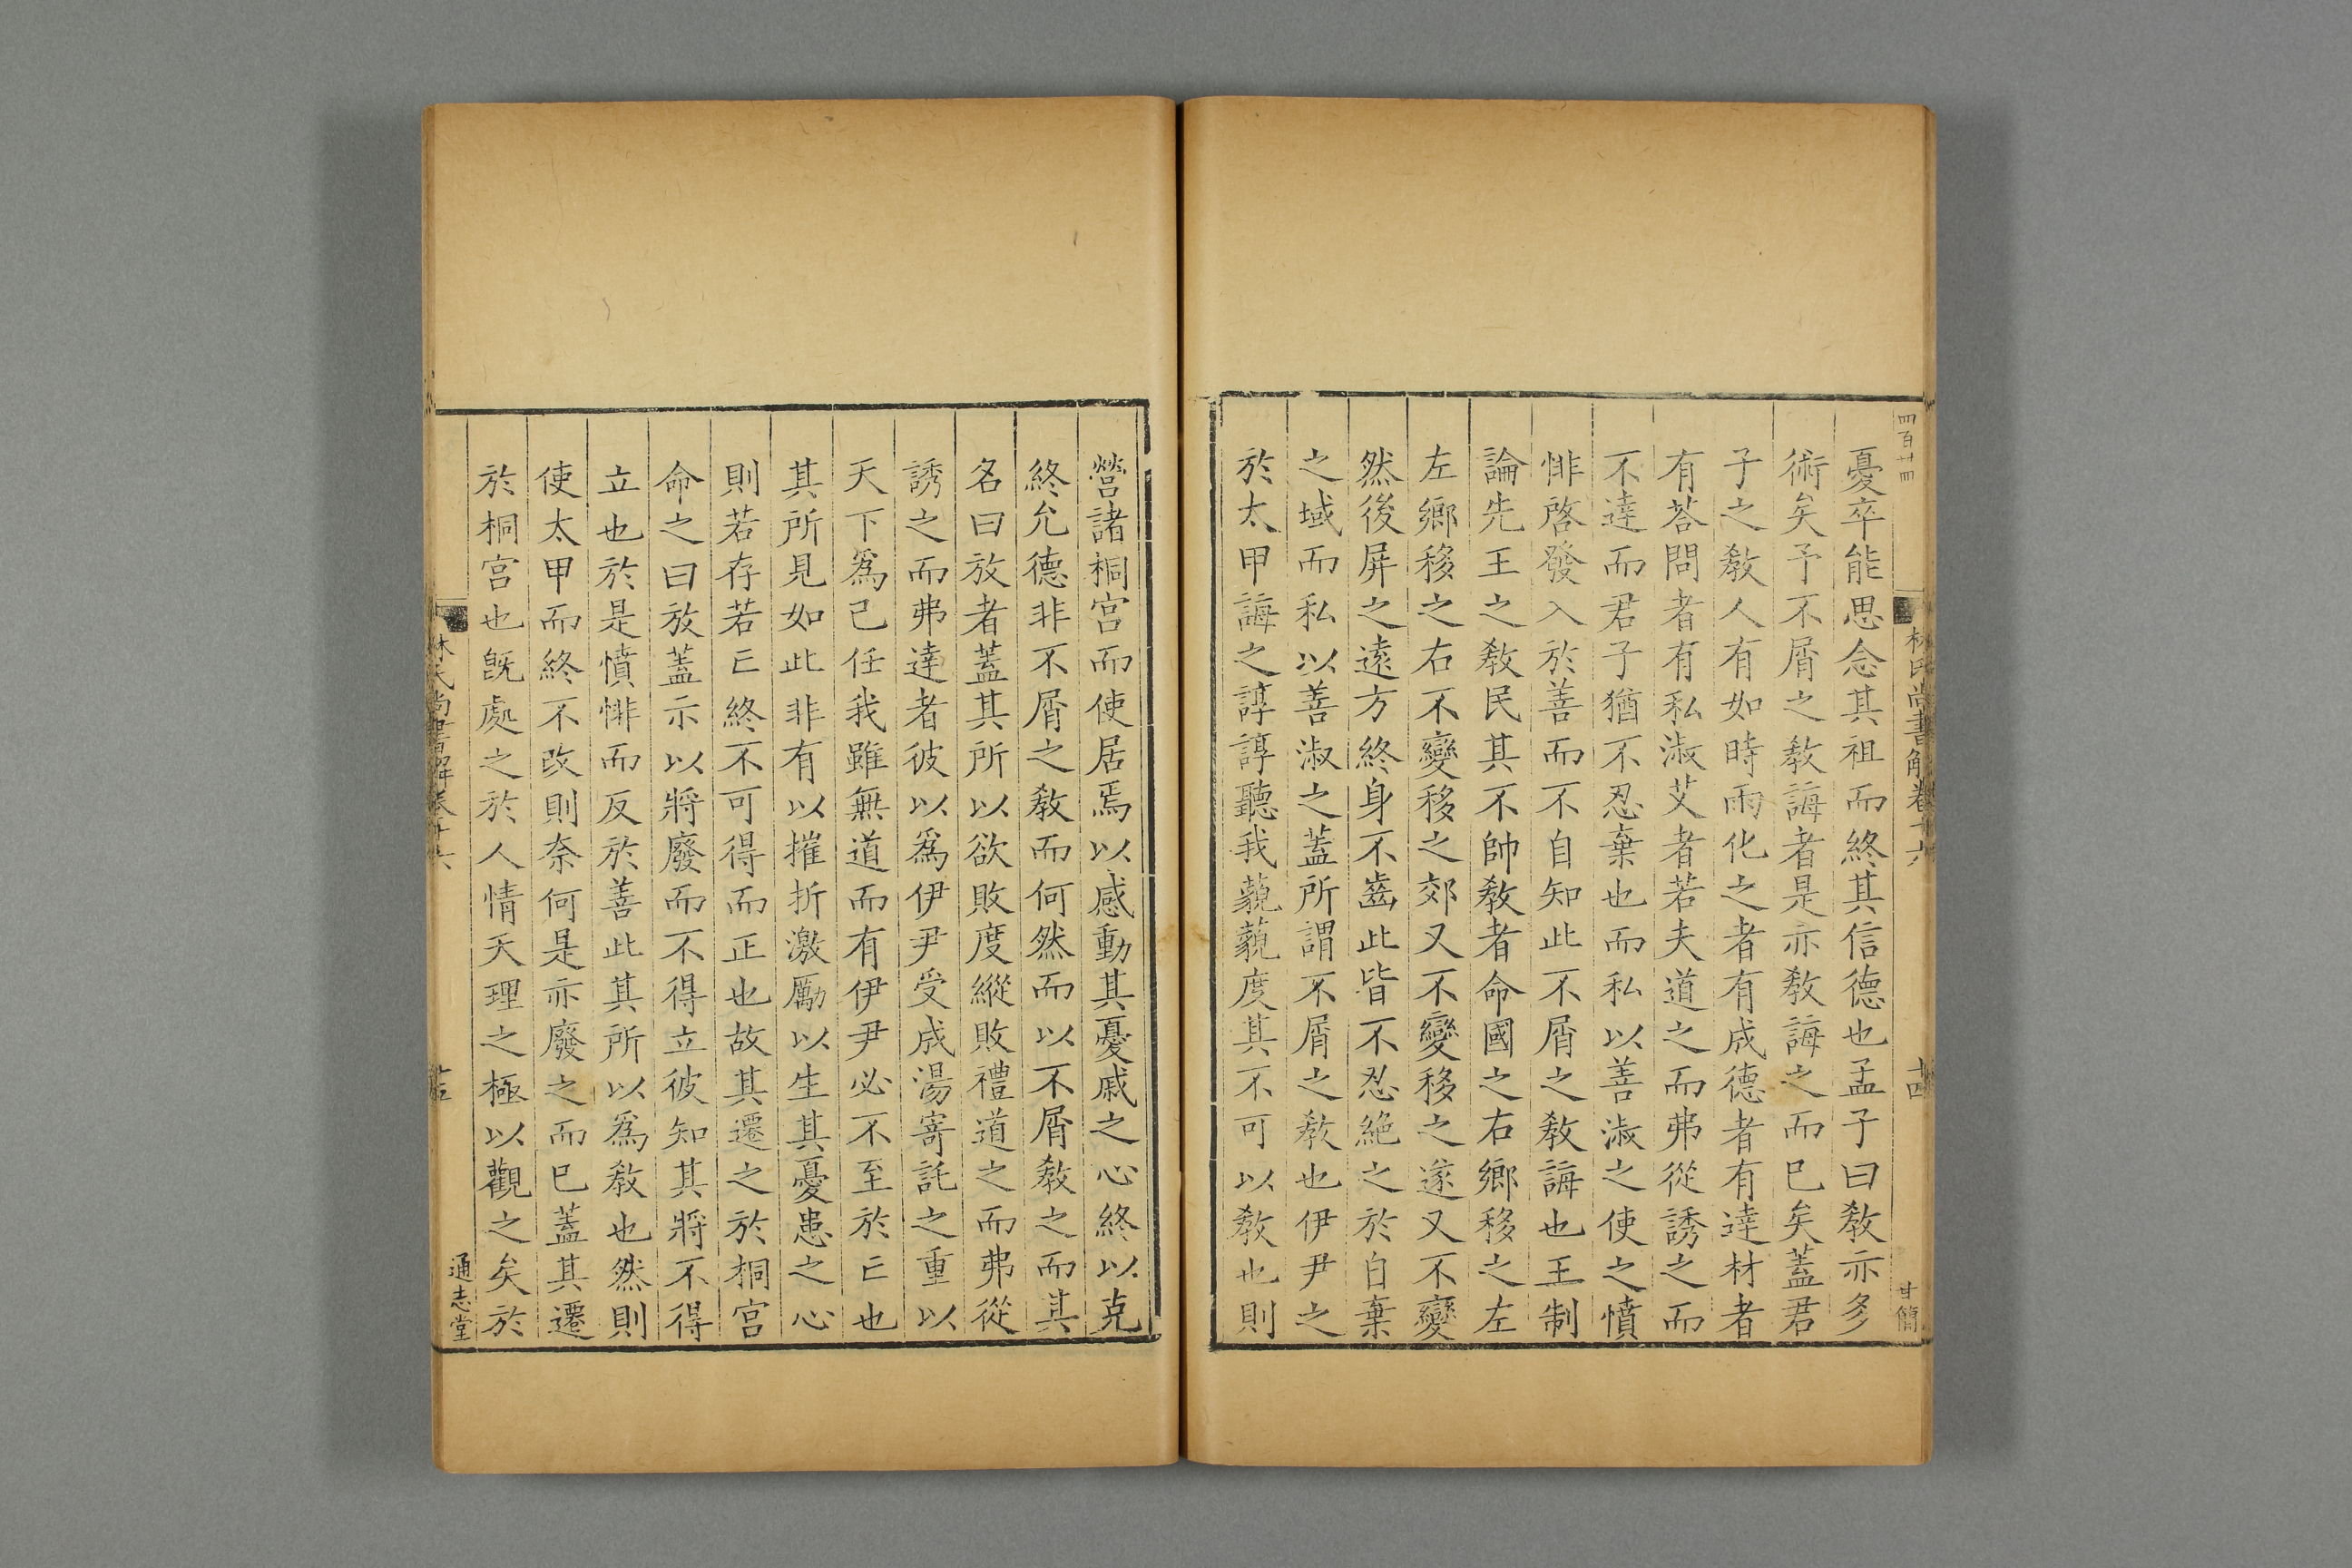 憂卒能思念其祖而終其信德也孟子曰敎亦多
術矣予不屑之敎誨者是亦敎誨之而已矣蓋君
子之敎人有如時雨化之者有成德者有達材者
有荅問者有私淑艾者若夫道之而弗從誘之而
不達而君子猶不忍棄也而私以善淑之使之憤
悱啓發入於善而不自知此不屑之敎誨也王制
論先王之敎民其不帥敎者命國之右鄉移之左
左鄉移之右不變移之郊又不變移之遂又不變
然後屏之遠方終身不齒此皆不忍絕之於自棄
之域而私以善淑之蓋所謂不屑之敎也伊尹之
於太甲誨之諄諄聽我藐藐度其不可以敎也則
林氏尚書解卷十六
十四
營諸桐宮而使居焉以感動其憂戚之心終以克
終允德非不屑之敎而何然而以不屑敎之而其
名曰放者蓋其所以欲敗度縱敗禮道之而弗從
誘之而弗達者彼以爲伊尹受成湯寄託之重以
天下爲己任我雖無道而有伊尹必不至於亡也
其所見如此非有以摧折激厲以生其憂患之心
則若存若亡終不可得而正也故其遷之於桐宮
命之曰放蓋示以將廢而不得立彼知其將不得
立也於是憤悱而反於善此其所以爲敎也然則
使太甲而終不改則奈何是亦廢之而已蓋其遷
於桐宮也旣處之於人情天理之極以觀之矣於
林氏尚書解卷十六
通志堂